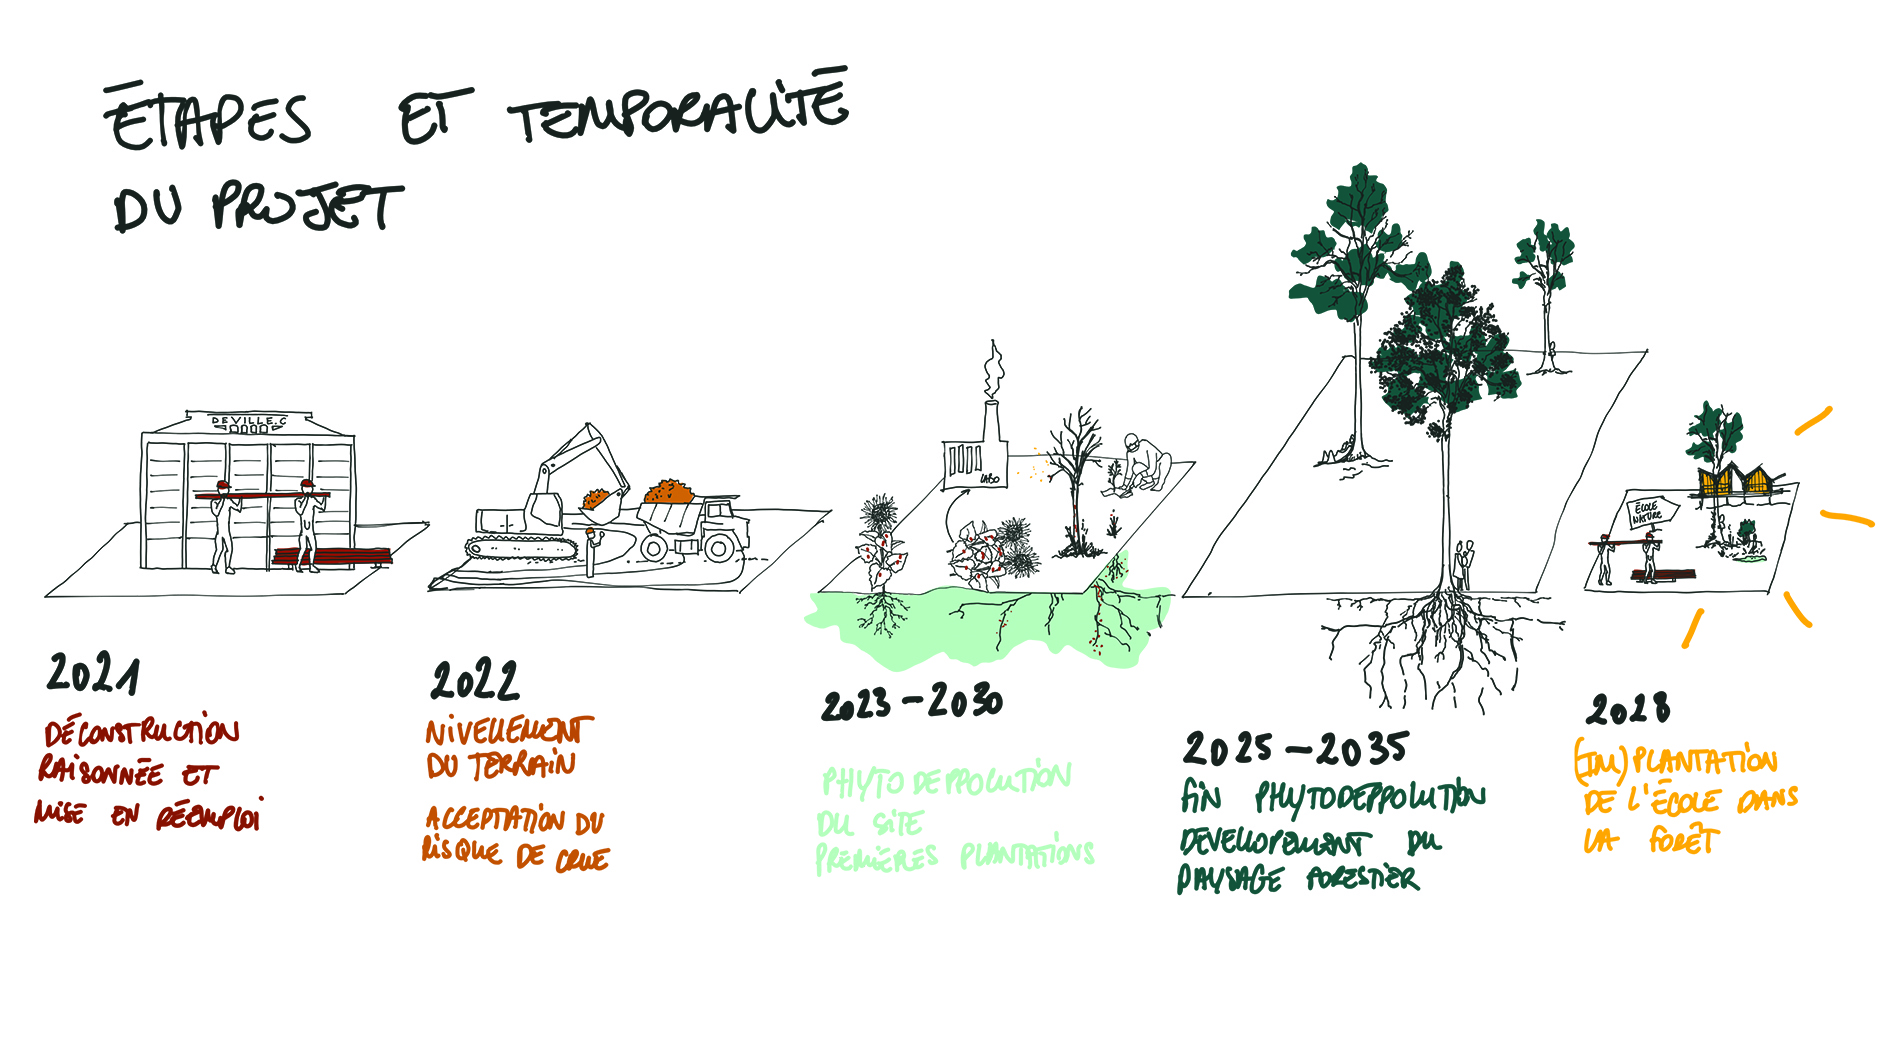 ÉTAPES ET TEMPORALITÉ
DU PROJET
DEVILLE.C
LABO
ÉCOLE
NATURE
2021
DÉCONSTRUCTION
RAISONNÉE ET
MISE EN RÉEMPLOI
2022
NIVELLEMENT
DU TERRAIN
ACCEPTATION DU
RISQUE DE CRUE
2023-2030
PHYTO DEPPOLUTION
DU SITE
PREMIÈRES PLANTATIONS
2025-2035
FIN PHYTODEPPOLUTION
DEVELLOPEMENT DU
PAYSAGE FORESTIER
2028
(IM)PLANTATION
DE L'ÉCOLE DANS
LA FORÊT